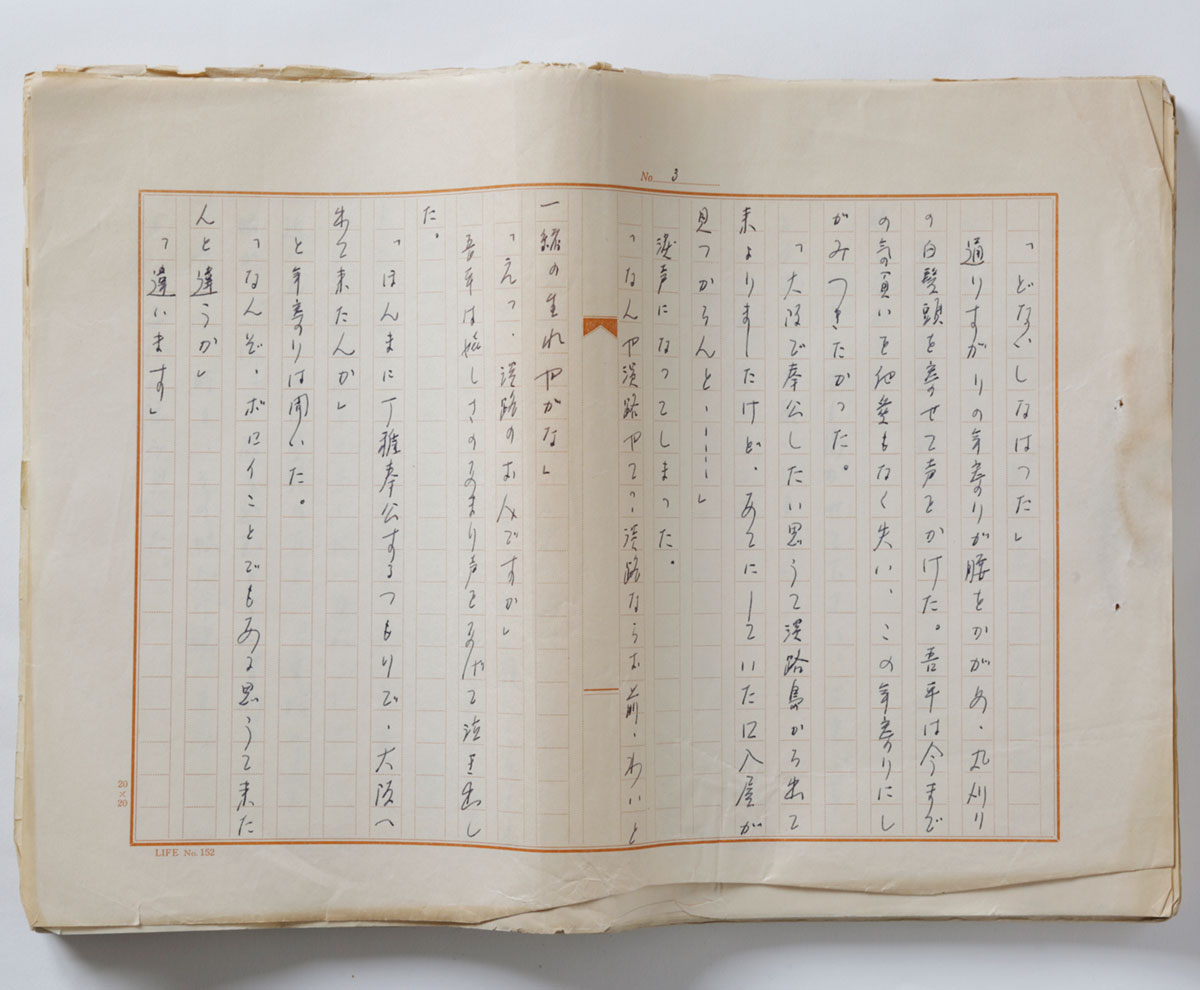 No. 3
「どないしなはった」
通りすがりの年寄りが腰をかがめ、丸刈り
の白髪頭を寄せて声をかけた。吾平は今まで
の気負いを他愛もなく失い、この年寄りにし
がみつきたかった。
「大阪で奉公したい思うて淡路島から出て
来よりましたけど、あてにしていた口入屋が
見つからんと…………」
涙声になってしまった。
「なんや淡路やて?、淡路ならお前、わいと
一緒の生れやがな」
「えっ、淡路のお人ですか」
吾平は嬉しさのあまり声をあげて泣き出し
た。
「ほんまに丁稚奉公するつもりで、大阪へ
出て来たんか」
と年寄りは聞いた。
「なんぞ、ボロイことでもある思うて来た
んと違うか」
「違います」
20×20
LIFE No. 152